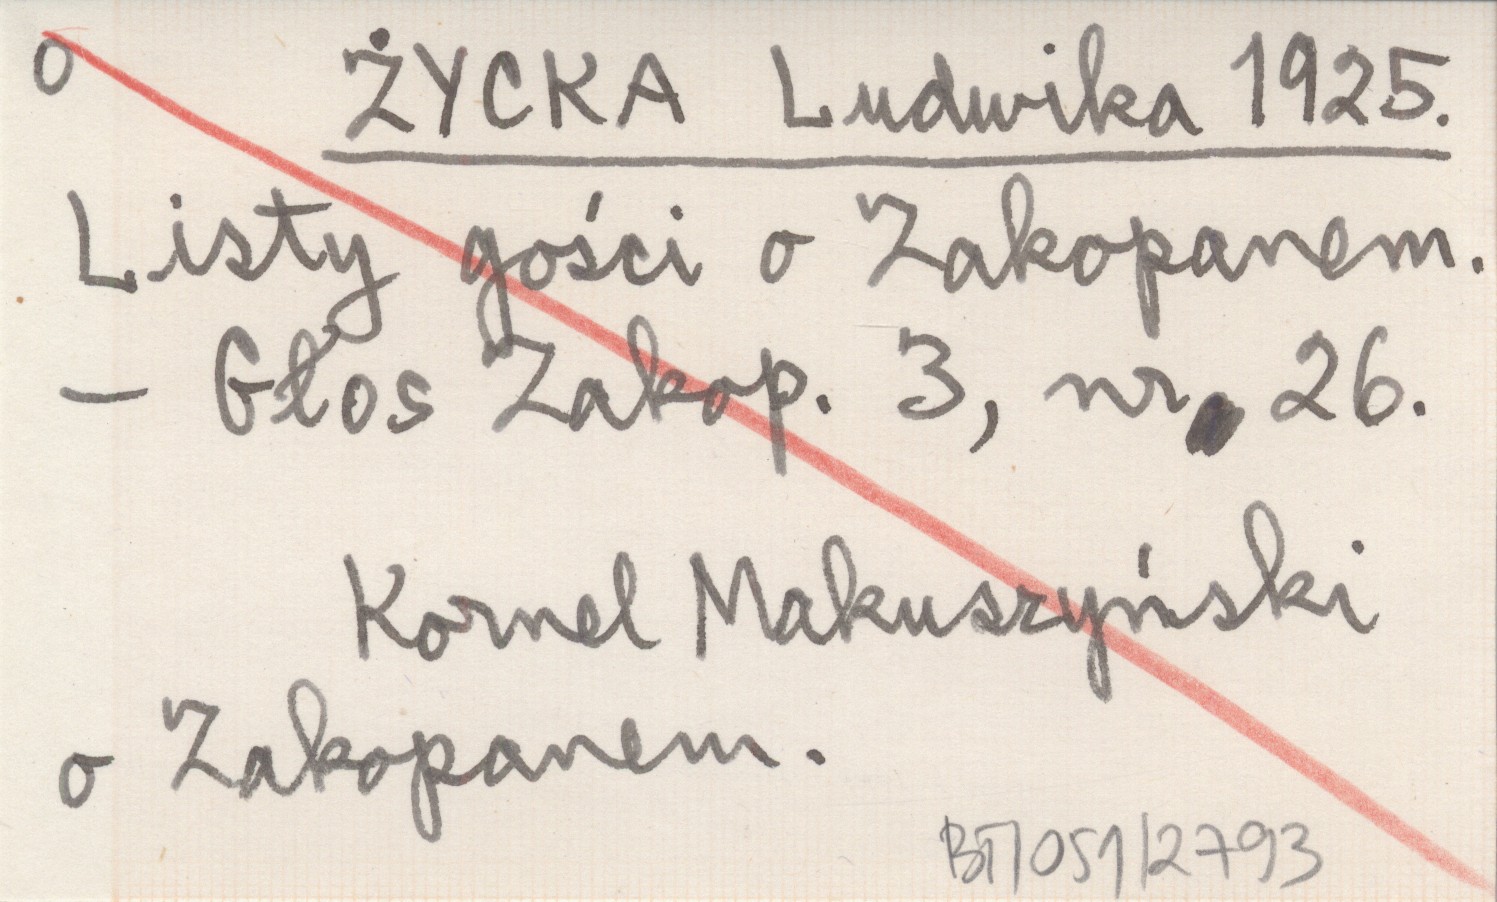 o ŻYCKA Ludwika 1925.
Listy gości o Zakopanem.
– Głos Zakop. 3, nr 26.
Kornel Makuszyński
o Zakopanem.
BT/051/2793